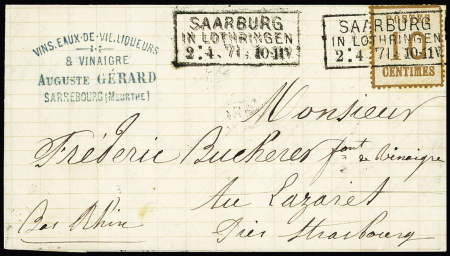 VINS.EAUX-DE-VIE.LIQUEURS
& VINAIGRE
AUGUSTE GÉRARD
SARREBOURG (MEURTHE)
SAARBURG
IN LOTHRINGEN
2. 4. 71 10-11V.
SAARBURG
IN LOTHRINGEN
2. 4. 71 10-11V.
CENTIMES
Monsieur
Fréderic Bucherer fant de Vinaigre
Au Lazaret
Bas Rhin
Près Strasbourg